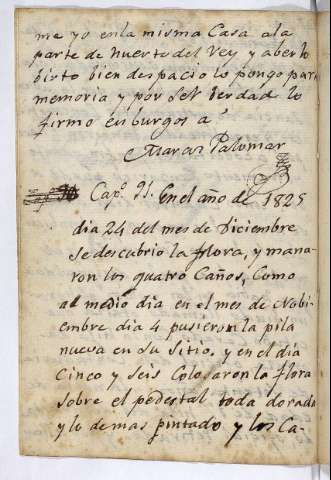 me yo en la misma Casa a la
parte de huerto del Rey y aberlo
bisto bien despacio lo pongo para
memoria y por ser berdad lo
firmo en burgos a
Marcos Palomar
Capº 91. En el año de 1825
dia 24 del mes de Diciembre
se descubrio la flora, y mana-
ron los quatro Caños, Como
al medio dia en el mes de Nobi-
embre dia 4 pusieron la pila
nueva en su Sitio, y en el dia
Cinco y seis Colocaron la flora
sobre el pedestal toda dorada
y lo demas pintado y los Ca-